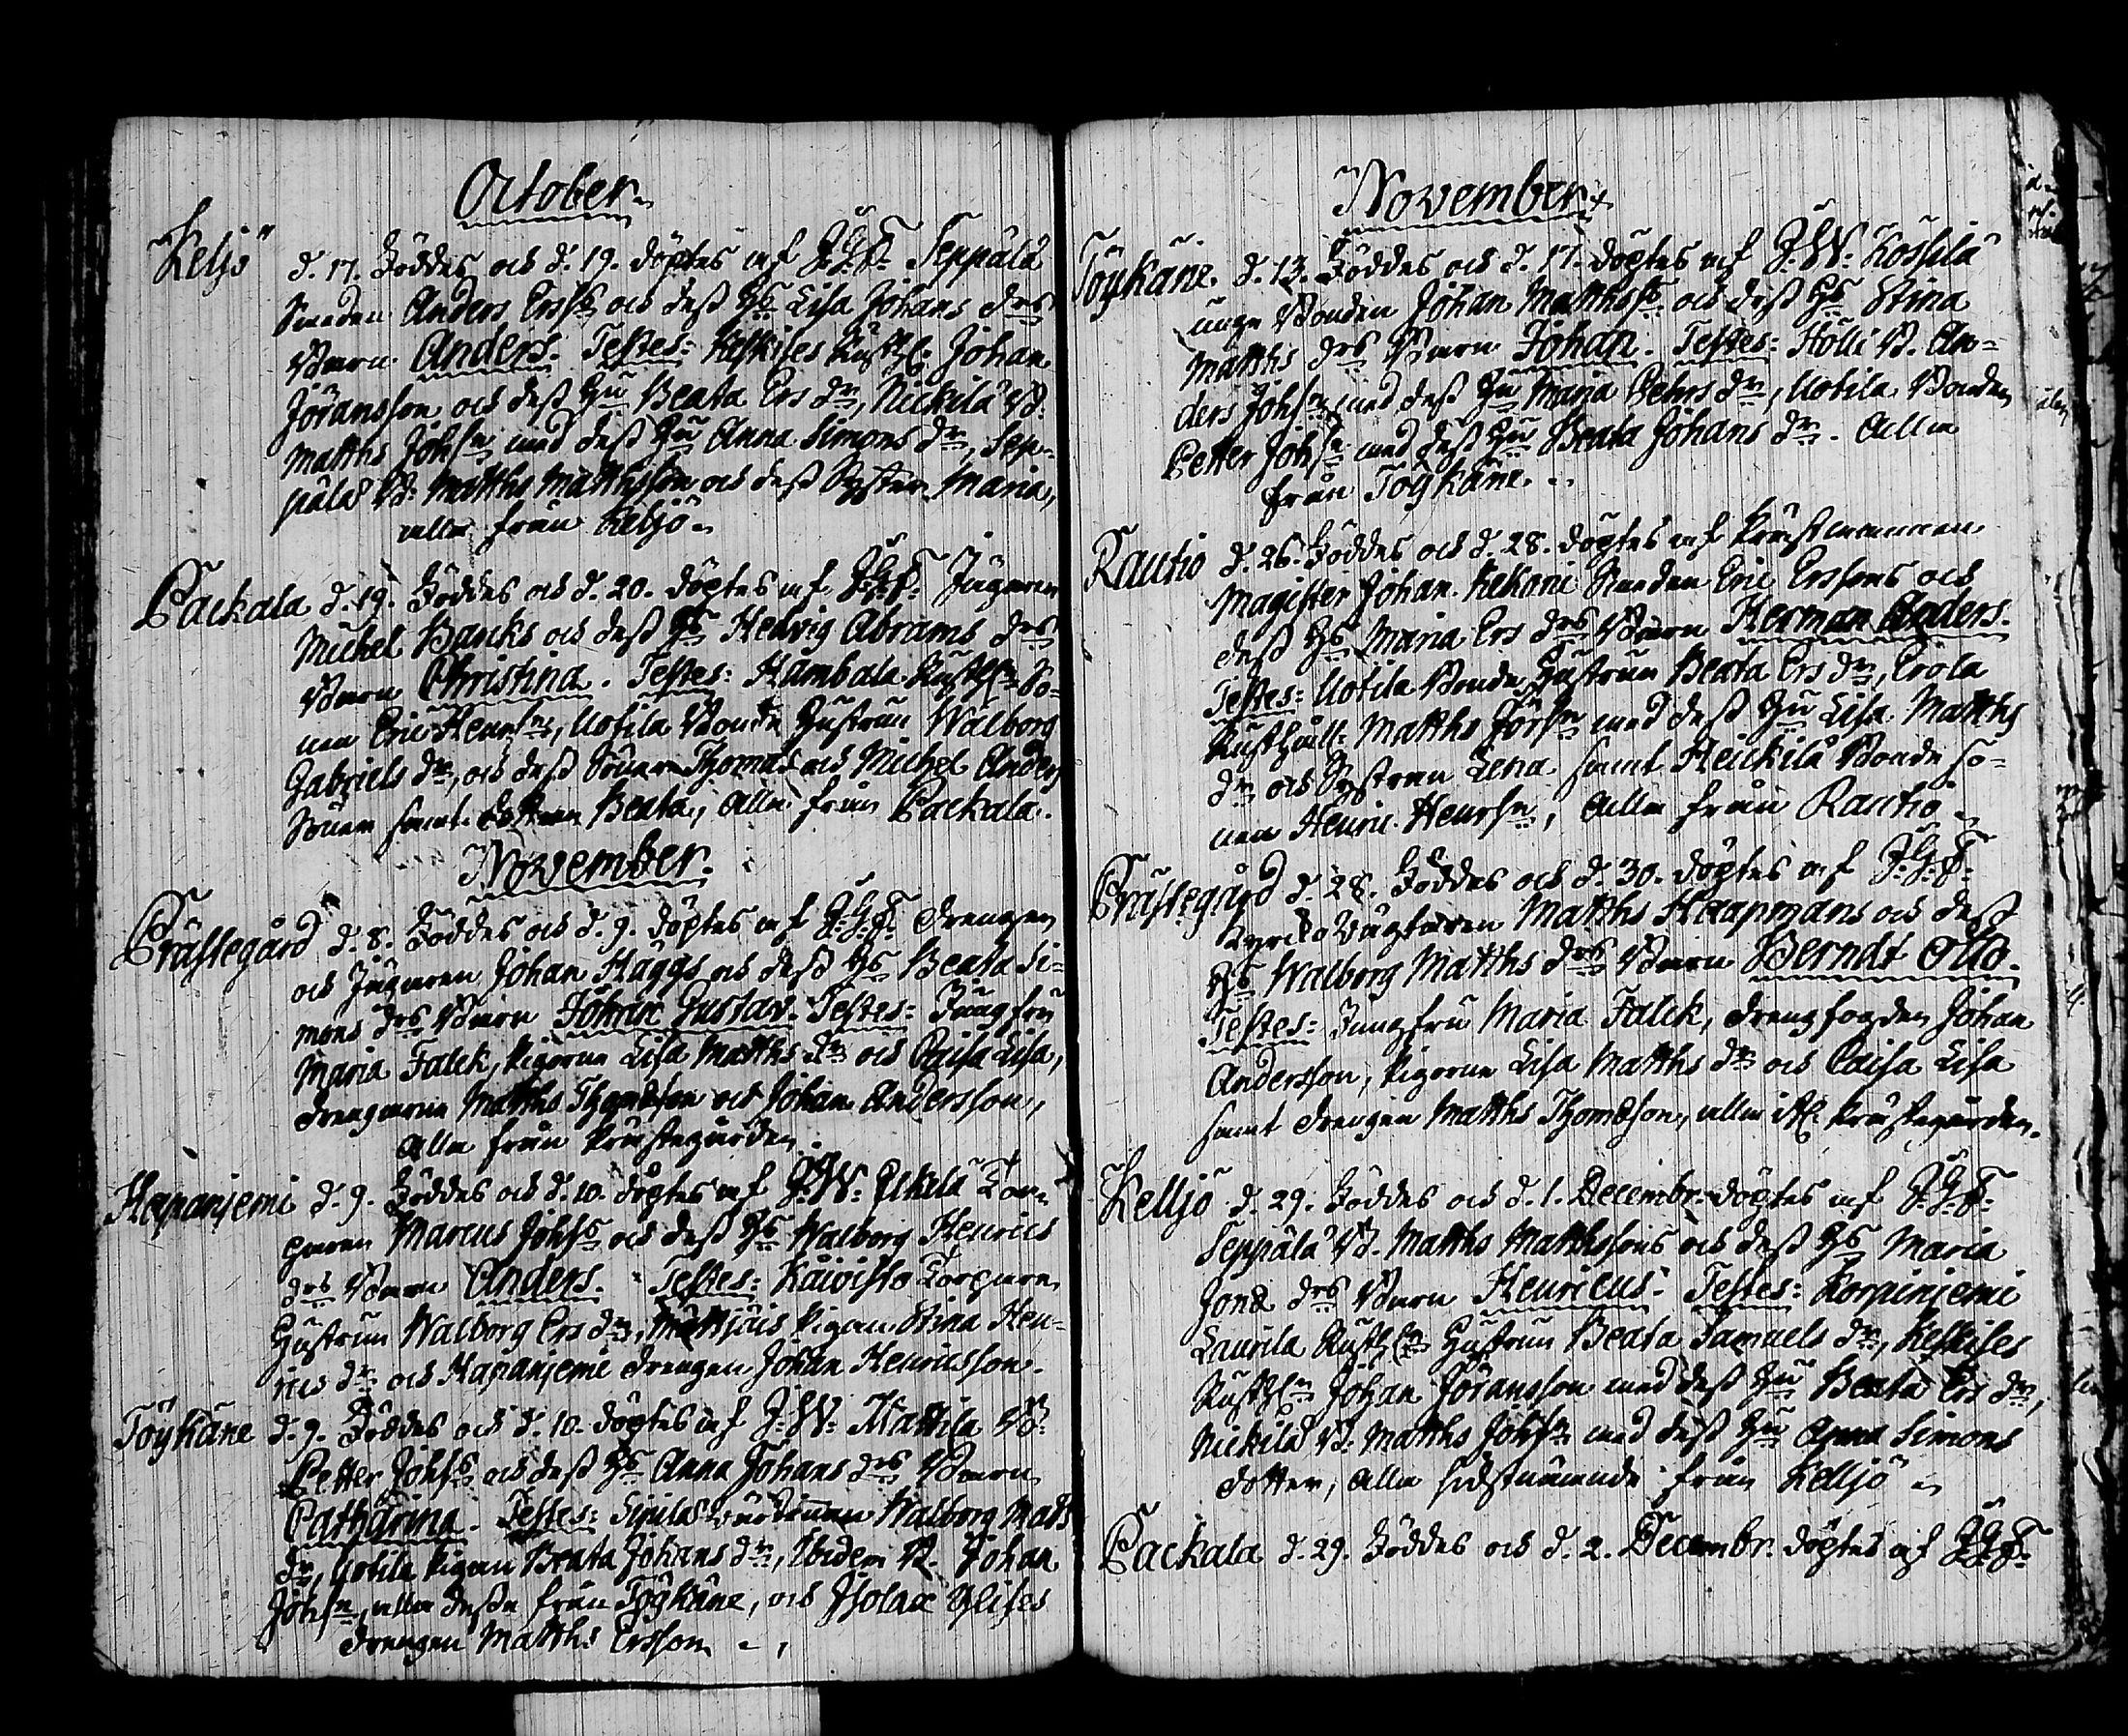 October
Keljo d. 17. Föddes och d. 19. döptes af J.G.F. Seppälä
Smeden Anders Erss och dess Hs Lisa Johans drs
Barn Anders. Testes: Keskises Rusth: Johan
Jöransson och dess Hu Beata Ers dr, Nickilä B.
Matths Johsn med dess Hu Anna Simons dr, Sep-
pälä B. Matths Matthsson och dess Syster Maria,
alla från Keljo
Packala d. 19. Föddes och d. 20. döptes af J.G.F. Jägaren
Michel Bancks och dess Hs Hedvig Abrams drs
Barn Christina. Testes: Hambala Rusth: So-
nen Eric Henrsn, Uotila Bonde Hustrun Walborg
Gabriels dr, och dess Söner Thomas och Michel Anders
Söner samt dottren Beata, Alla från Packala.
November.
Prästegård d. 8. Föddes och d. 9. döptes af J.G.F. Drengen
och Jägaren Johan Häggs och dess Hs Beata Si-
mons drs Barn Johan Gustav. Testes: Jungfru
Maria Falck, Pigorne Lisa Matths dr och Caisa Lisa,
Drengarna Matths Thomsson och Johan Andersson,
Alla från Prästegården.
Hapanjemi d. 9. Föddes och d. 10. döptes af J.W. Eskilä Tor-
paren Marcus Johss och dess Hs Walborg Henrics
drs Barn Anders. Testes: Kåivisto Torparen
Hustrun Walborg Ers dr, Pigan Stina Hen-
rics dr och Hapanjemi Drengen Johan Henricsson.
Töykäne d. 9. Föddes och d. 10. döptes af J.W. Mattila B.
Petter Johss och dess Hs Anna Johans drs Barn
Catharina. Testes: Sipilä Värdinnan Walborg Mats
dr, Uotila Pigan Beata Johans dr, Ibidem B. Johan
Johsn, alla desse från Töykäne, och
Drengen Matths Ersson
November
Töykäne. d. 13. Föddes och d. 17. döptes af J.W. Kossila
unge Bonden Johan Matthss och dess Hs Stina
Matths drs Barn Johan. Testes: Hölli B. An-
ders Johsn med dess Hu Maria Pehrs dr, Uotila Bonden
Petter Johsn med dess Hu Beata Johans dr. Alla
från Töykäne.
Rautio d. 26. Föddes och d. 28. döptes af Præstmannen
Magister Johan Kekoni Smeden Eric Erssons och
dess Hs Maria Ers drs Barn Herman Anders.
Testes: Uotila Bonde Hustrun Beata Ers dr, Erola
Rusthåll: Matths Jörsn med dess Hu Lisa Matths
dr och Systren Lena samt Heickilä Bonde So-
nen Henric Henrsn, Alla från Rautio
Prästegård d. 28. Föddes och d. 30. döptes af J.G.F.
Kyrckowägtaren Matths Haapmans och dess
Hs Walborg Matths drs Barn Berndt Otto.
Testes: Jungfru Maria Falck, Drengfogden Johan
Andersson, Pigorne Lisa Matths dr och Caisa Lisa
samt Drengen Matths Thomsson, alla ifr: Prästegården.
Kelljo d. 29. Föddes och d. 1. Decembr. döptes af J.G.F.
Seppälä B. Matths Matthssons och dess Hs Maria
Jons drs Barn Henricus. Testes: Korpinjemi
Laurila Rusth: Hustrun Beata Samuels dr, Keskises
Rusth: Johan Jöransson med dess Hu Beata Ers dr,
Nickilä B. Matths Johsn med dess Hu Anna Simons
dotter, Alla sidstnämnde från Kelljo
Packala d. 29. Föddes och d. 2. Decembr. döptes af J.G.F.